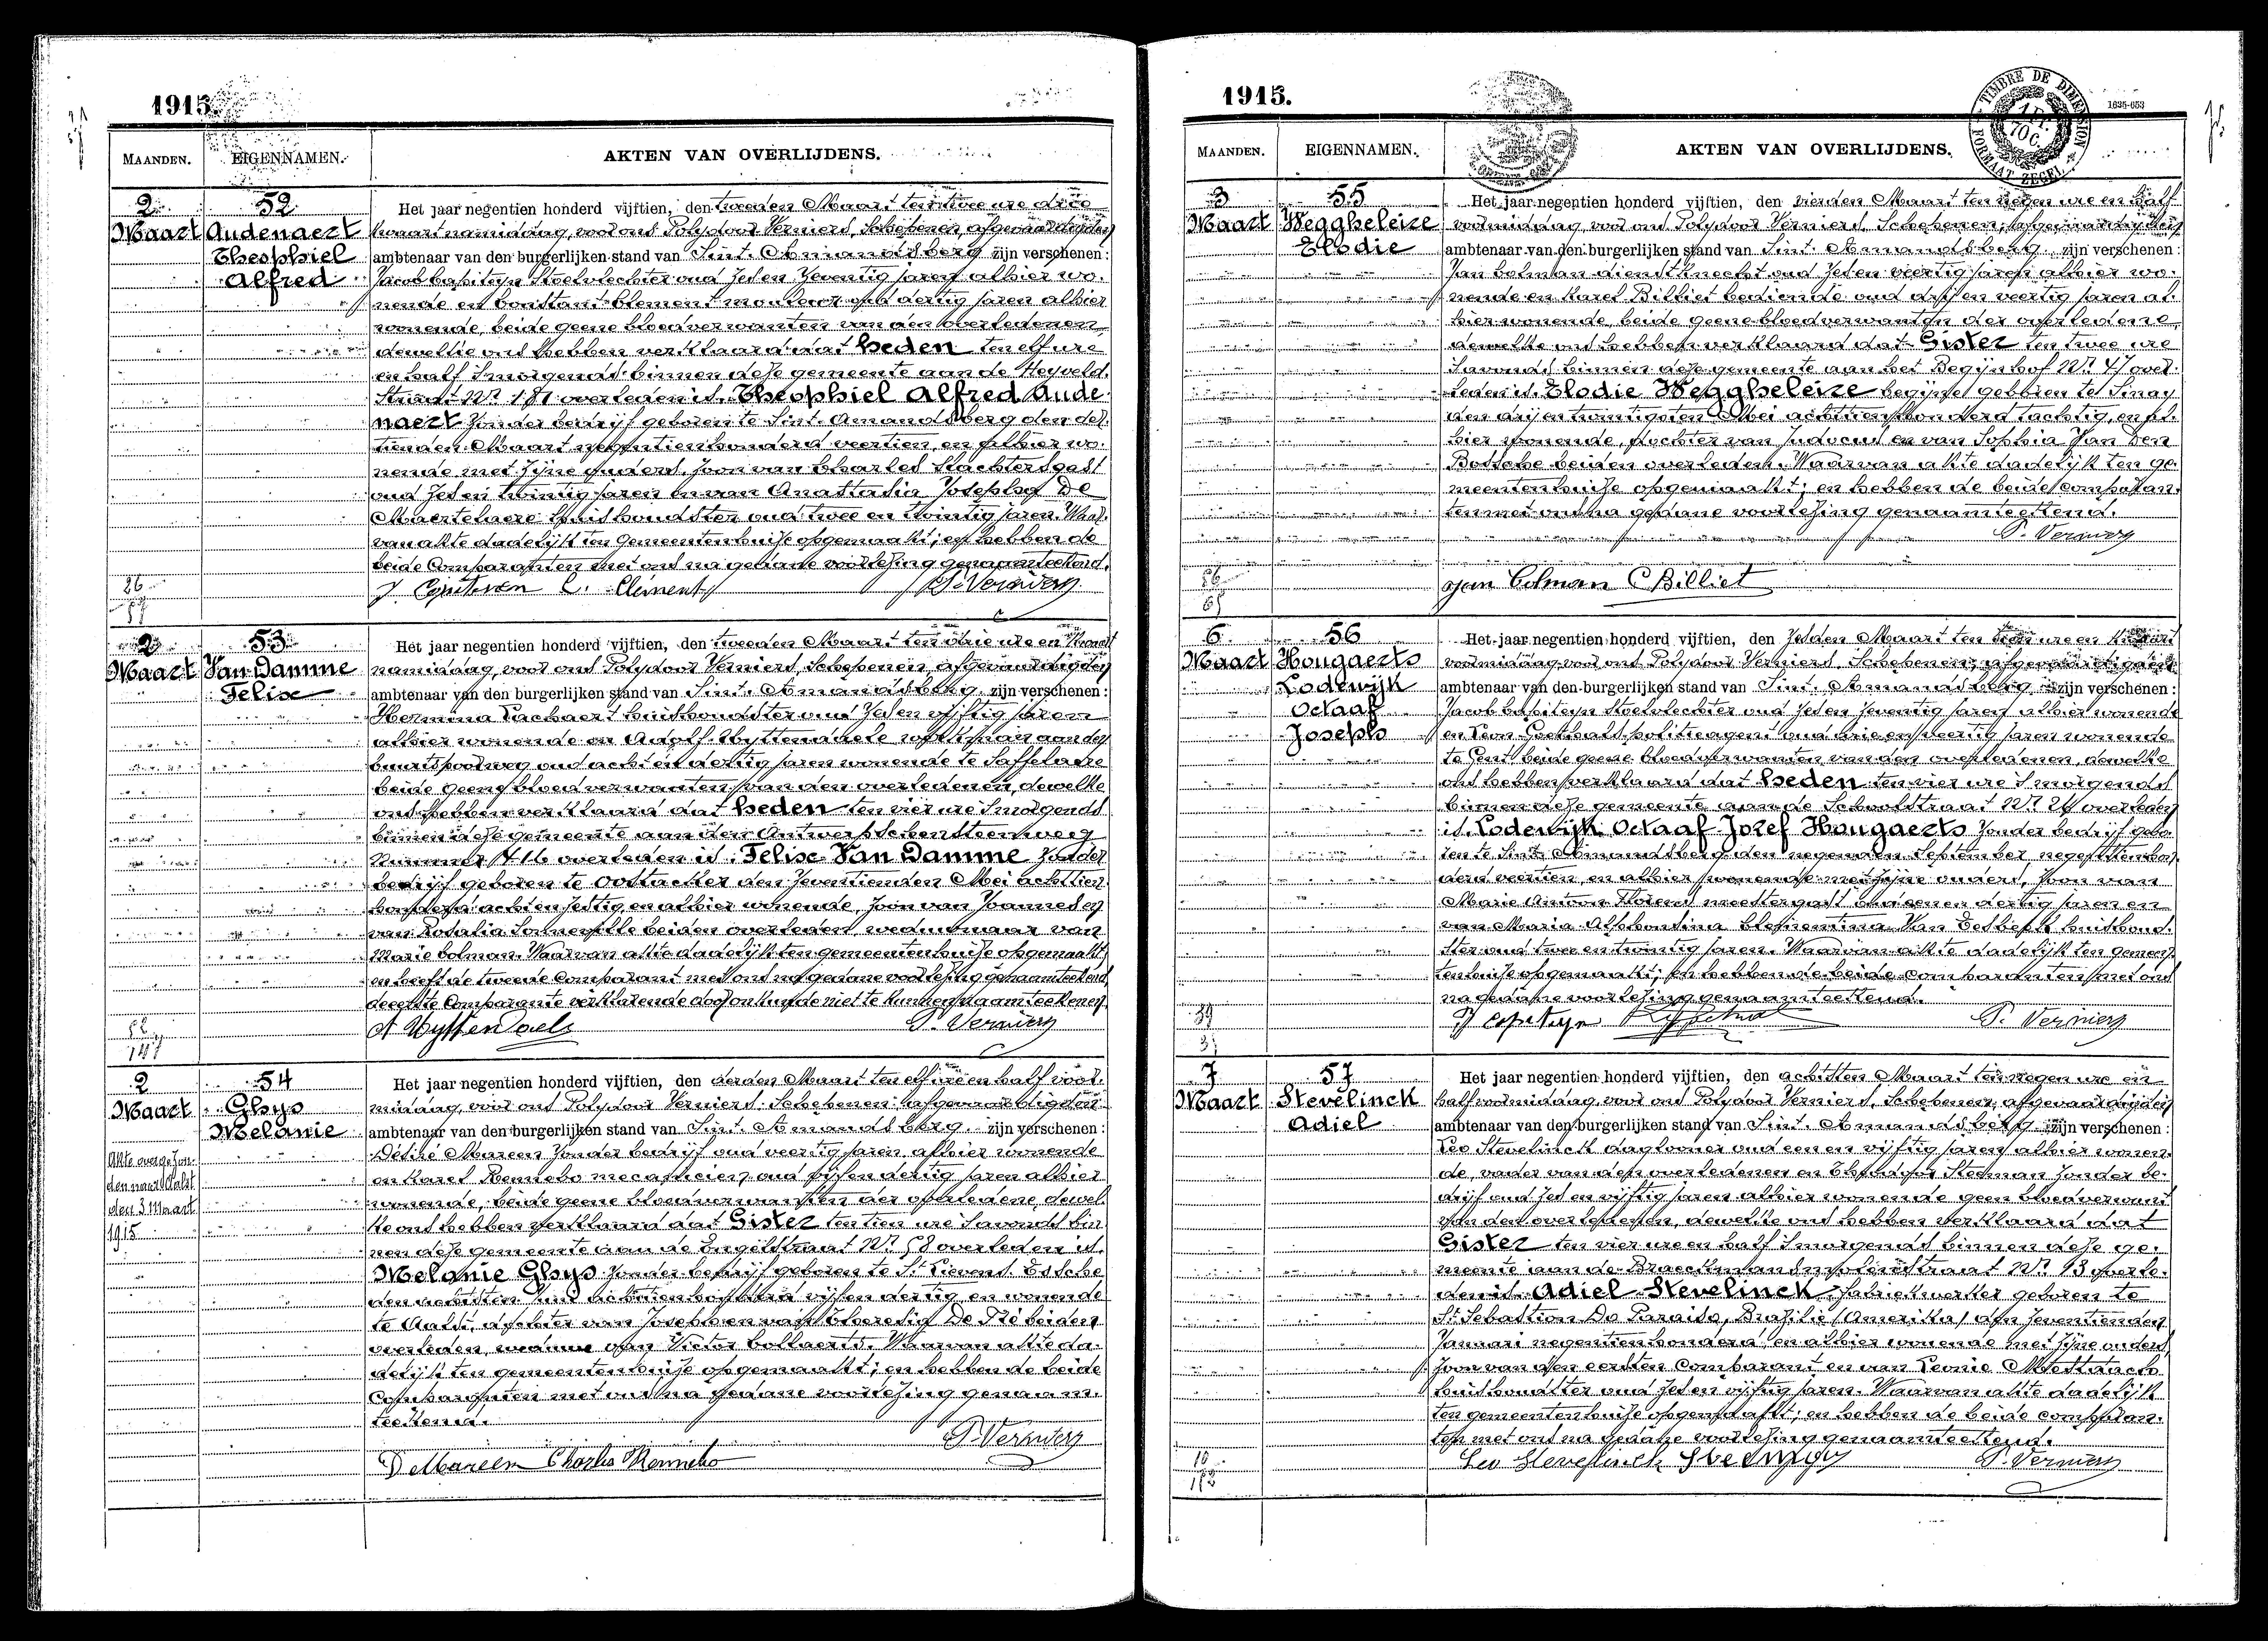 1915.
MAANDEN.
EIGENNAMEN.
AKTEN VAN OVERLIJDENS.
2 Maart
52
Audenaert
Theophiel
Alfred
Het jaar negentien honderd vijftien, den tweeden Maart ten twee ure drie
kwaart namiddag, voor ons Polydoor Verniers, Schepenen, afgevaardigden
ambtenaar van den burgerlijken stand van Sint. Amandsberg zijn verschenen:
Jacob Stoelvlechter oud zes en zeventig jaren alhier wo-
nende en Constant Clement oud dertig jaren alhier
wonende, beide geene bloedverwanten van den overledenen
dewelke ons hebben verklaard dat heden ten elf ure
en half 's morgends binnen deze gemeente aan de Heyveld-
straat Nr overleden is. Theophiel Alfred Aude
naert zonder bedrijf geboren te Sint. Amandsberg den
tienden Maart negentienhonderd veertien, en alhier wo-
nende met zijne ouders, zoon van Charles Slachtersgast
oud zes en twintig jaren en van Anastasia Josepha De
Maertelaere Huishoudster oud twee en twintig jaren. Waar-
van akte dadelijk ten Gemeentenhuize opgemaakt; en hebben de
beide Comparanten met ons na gedane voorlezing genaamteekend.
C. Clement P. Verniers
2 Maart
53
Van Damme
Felix
Het jaar negentien honderd vijftien, den tweeden Maart ten drie ure en kwaart
namiddag, voor ons Polydoor Verniers, Schepenen, afgevaardigden
ambtenaar van den burgerlijken stand van Sint. Amandsberg zijn verschenen:
Hermina huishoudster oud zes en vijftig jaren
alhier wonende en Adolf Wyttendaele werkman aan den
buurtspoorweg oud acht en dertig jaren wonende te Saffelaere
beide geene bloedverwanten van den overledenen, dewelke
ons hebben verklaard dat heden ten vier ure 's morgends
binnen deze gemeente aan den Antwerpschensteenweg
Nummer 416 overleden is. Felix Van Damme zonder
bedrijf geboren te Oostacker den zeventienden Mei achttien
honderd achtenzestig, en alhier wonende, zoon van Joannes en
van Rosalia beiden overleden, weduwnaar van
Marie Colman. Waarvan akte dadelijk ten gemeentenhuize opgemaakt
en heeft de tweede Comparant met ons na gedane voorlezing genaamteekend,
de eerste Comparante verklarende door onkunde niet te kunnen naamteekenen.
P. Verniers
2 Maart
54
Ghys
Melanie
Akte overgezon-
den naar Aalst
den 3 Maart
1915
Het jaar negentien honderd vijftien, den derden Maart ten elf ure en half voor-
middag, voor ons Polydoor Verniers, Schepenen, afgevaardigden
ambtenaar van den burgerlijken stand van Sint. Amandsberg zijn verschenen:
Désiré Mareen zonder bedrijf oud veertig jaren alhier wonende
en Karel Rennebo mecanicien, oud vijf en dertig jaren alhier
wonende, beide geene bloedverwanten der overledene, dewel-
ke ons hebben verklaard dat Gister ten tien ure 's avonds bin-
nen deze gemeente aan de Engelstraat Nr 58 overleden is.
Melanie Ghys zonder bedrijf geboren te St Lievens Essche
den achtsten achttienhonderd vijf en dertig, en wonende
te Aalst, dochter van Joseph en van De Pré beiden
overleden, weduwe van Victor Collaerts. Waarvan akte da-
delijk ten gemeentenhuize opgemaakt; en hebben de beide
Comparanten met ons na gedane voorlezing genaam-
teekend.
P. Verniers
D Mareen Charles Rennebo
1915.
TIMBRE DE DIMENSION
FORMAAT ZEGEL
1635-653
MAANDEN.
EIGENNAMEN.
AKTEN VAN OVERLIJDENS.
3 Maart
55
Weggheleire
Elodie
Het jaar negentien honderd vijftien, den vierden Maart ten negen ure en half
voormiddag, voor ons Polydoor Verniers, Schepenen, afgevaardigden
ambtenaar van den burgerlijken stand van Sint. Amandsberg zijn verschenen:
Jan Colman dienstknecht oud zes en veertig jaren alhier wo-
nende en Karel Billiet bediende oud vijf en veertig jaren al-
hier wonende, beide geene bloedverwanten der overledene,
dewelke ons hebben verklaard dat Gister ten twee ure
's avonds binnen deze gemeente aan het Begijnhof Nr 47 over-
leden is. Elodie Weggheleire begijn geboren te Sinay
den drij en twintigsten Mei achttienhonderd tachtig, en al-
hier wonende, dochter van Judocus en van Sophia Van Den
Bossche beiden overleden. Waarvan akte dadelijk ten ge-
meentenhuize opgemaakt; en hebben de beide Comparan-
ten met ons na gedane voorlezing genaamteekend.
P. Verniers
Jan Colman C Billiet
6 Maart
56
Hougaerts
Lodewijk
Octaaf
Joseph
Het jaar negentien honderd vijftien, den zesden Maart ten ure en kwaart
voormiddag, voor ons Polydoor Verniers, Schepenen, afgevaardigden
ambtenaar van den burgerlijken stand van Sint. Amandsberg zijn verschenen:
Jacob Stoelvlechter oud zes en zeventig jaren alhier wonende
en Leon politieagent oud drie en veertig jaren wonende
te Gent beide geene bloedverwanten van den overledenen, dewelke
ons hebben verklaard dat heden ten vier ure 's morgends
binnen deze gemeente aan de Schoolstraat Nr overleden
is. Lodewijk Octaaf Jozef Hougaerts zonder bedrijf gebo-
ren te Sint. Amandsberg den negenden September negentienhon-
derd veertien, en alhier wonende met zijne ouders, zoon van
Marie Antoon meestergast oud en dertig jaren en
van Maria Alphonsina Clementina Van huishoud-
ster oud twee en twintig jaren. Waarvan akte dadelijk ten gemeen-
tenhuize opgemaakt; en hebben de beide comparanten met ons
na gedane voorlezing genaamteekend.
P. Verniers
7 Maart
57
Stevelinck
Adiel
Het jaar negentien honderd vijftien, den achtsten Maart ten negen ure en
half voormiddag, voor ons Polydoor Verniers, Schepenen, afgevaardigden
ambtenaar van den burgerlijken stand van Sint. Amandsberg zijn verschenen:
Leo Stevelinck daglooner oud een en vijftig jaren alhier wonen-
de, vader van den overledenen en Steeman zonder be-
drijf oud zes en vijftig jaren alhier wonende geen bloedverwant
van den overledenen, dewelke ons hebben verklaard dat
Gister ten vier ure en half 's morgends binnen deze ge-
meente aan de straat Nr 13 overle-
den is. Adiel Stevelinck, fabriekwerker geboren te
St Sebastion Do Paraiso, Brazilie (Amerika) den zeventienden
Januari negentienhonderd, en alhier wonende met zijne ouders,
zoon van den eersten Comparant en van Leonie Mestdach
huishoudster oud zes en vijftig jaren. Waarvan akte dadelijk
ten gemeentenhuize opgemaakt; en hebben de beide comparan-
ten met ons na gedane voorlezing genaamteekend.
Leo Stevelinck P. Verniers